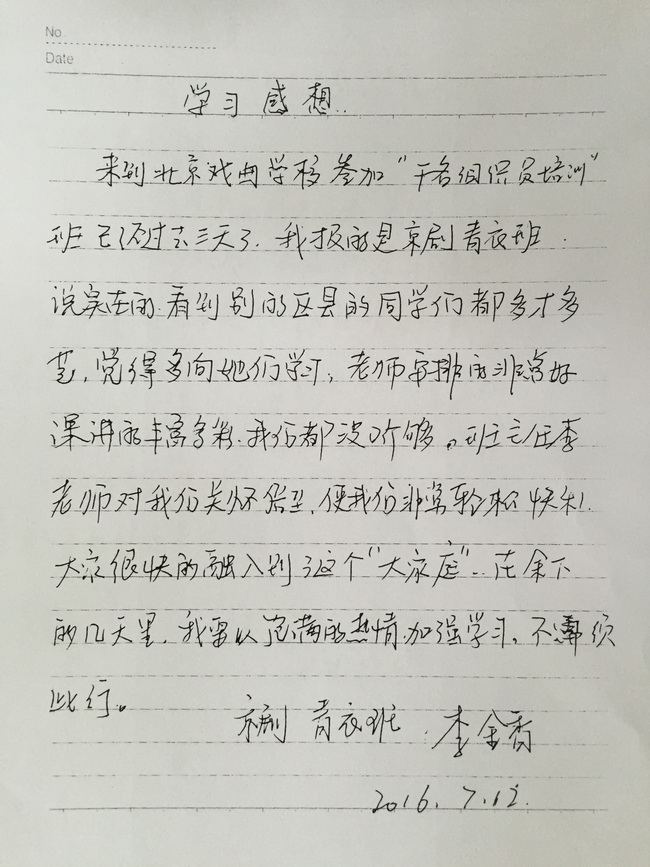 No.
Date
学习感想..
来到北京戏曲学校参加“千名组保员培训”
班已经过去三天了.我报的是京剧青衣班.
说实在的.看到别的区县的同学们都多才多
艺,觉得多向她们学习,老师安排的非常好
课讲的丰富多彩.我们都没听够。班主任李
老师对我们关怀倍至,使我们非常轻松快乐!
大家很快的融入到了这个“大家庭”..在余下
的几天里,我要以饱满的热情.加强学习.不须
此行。
京剧青衣班.李金香
2016.7.12.